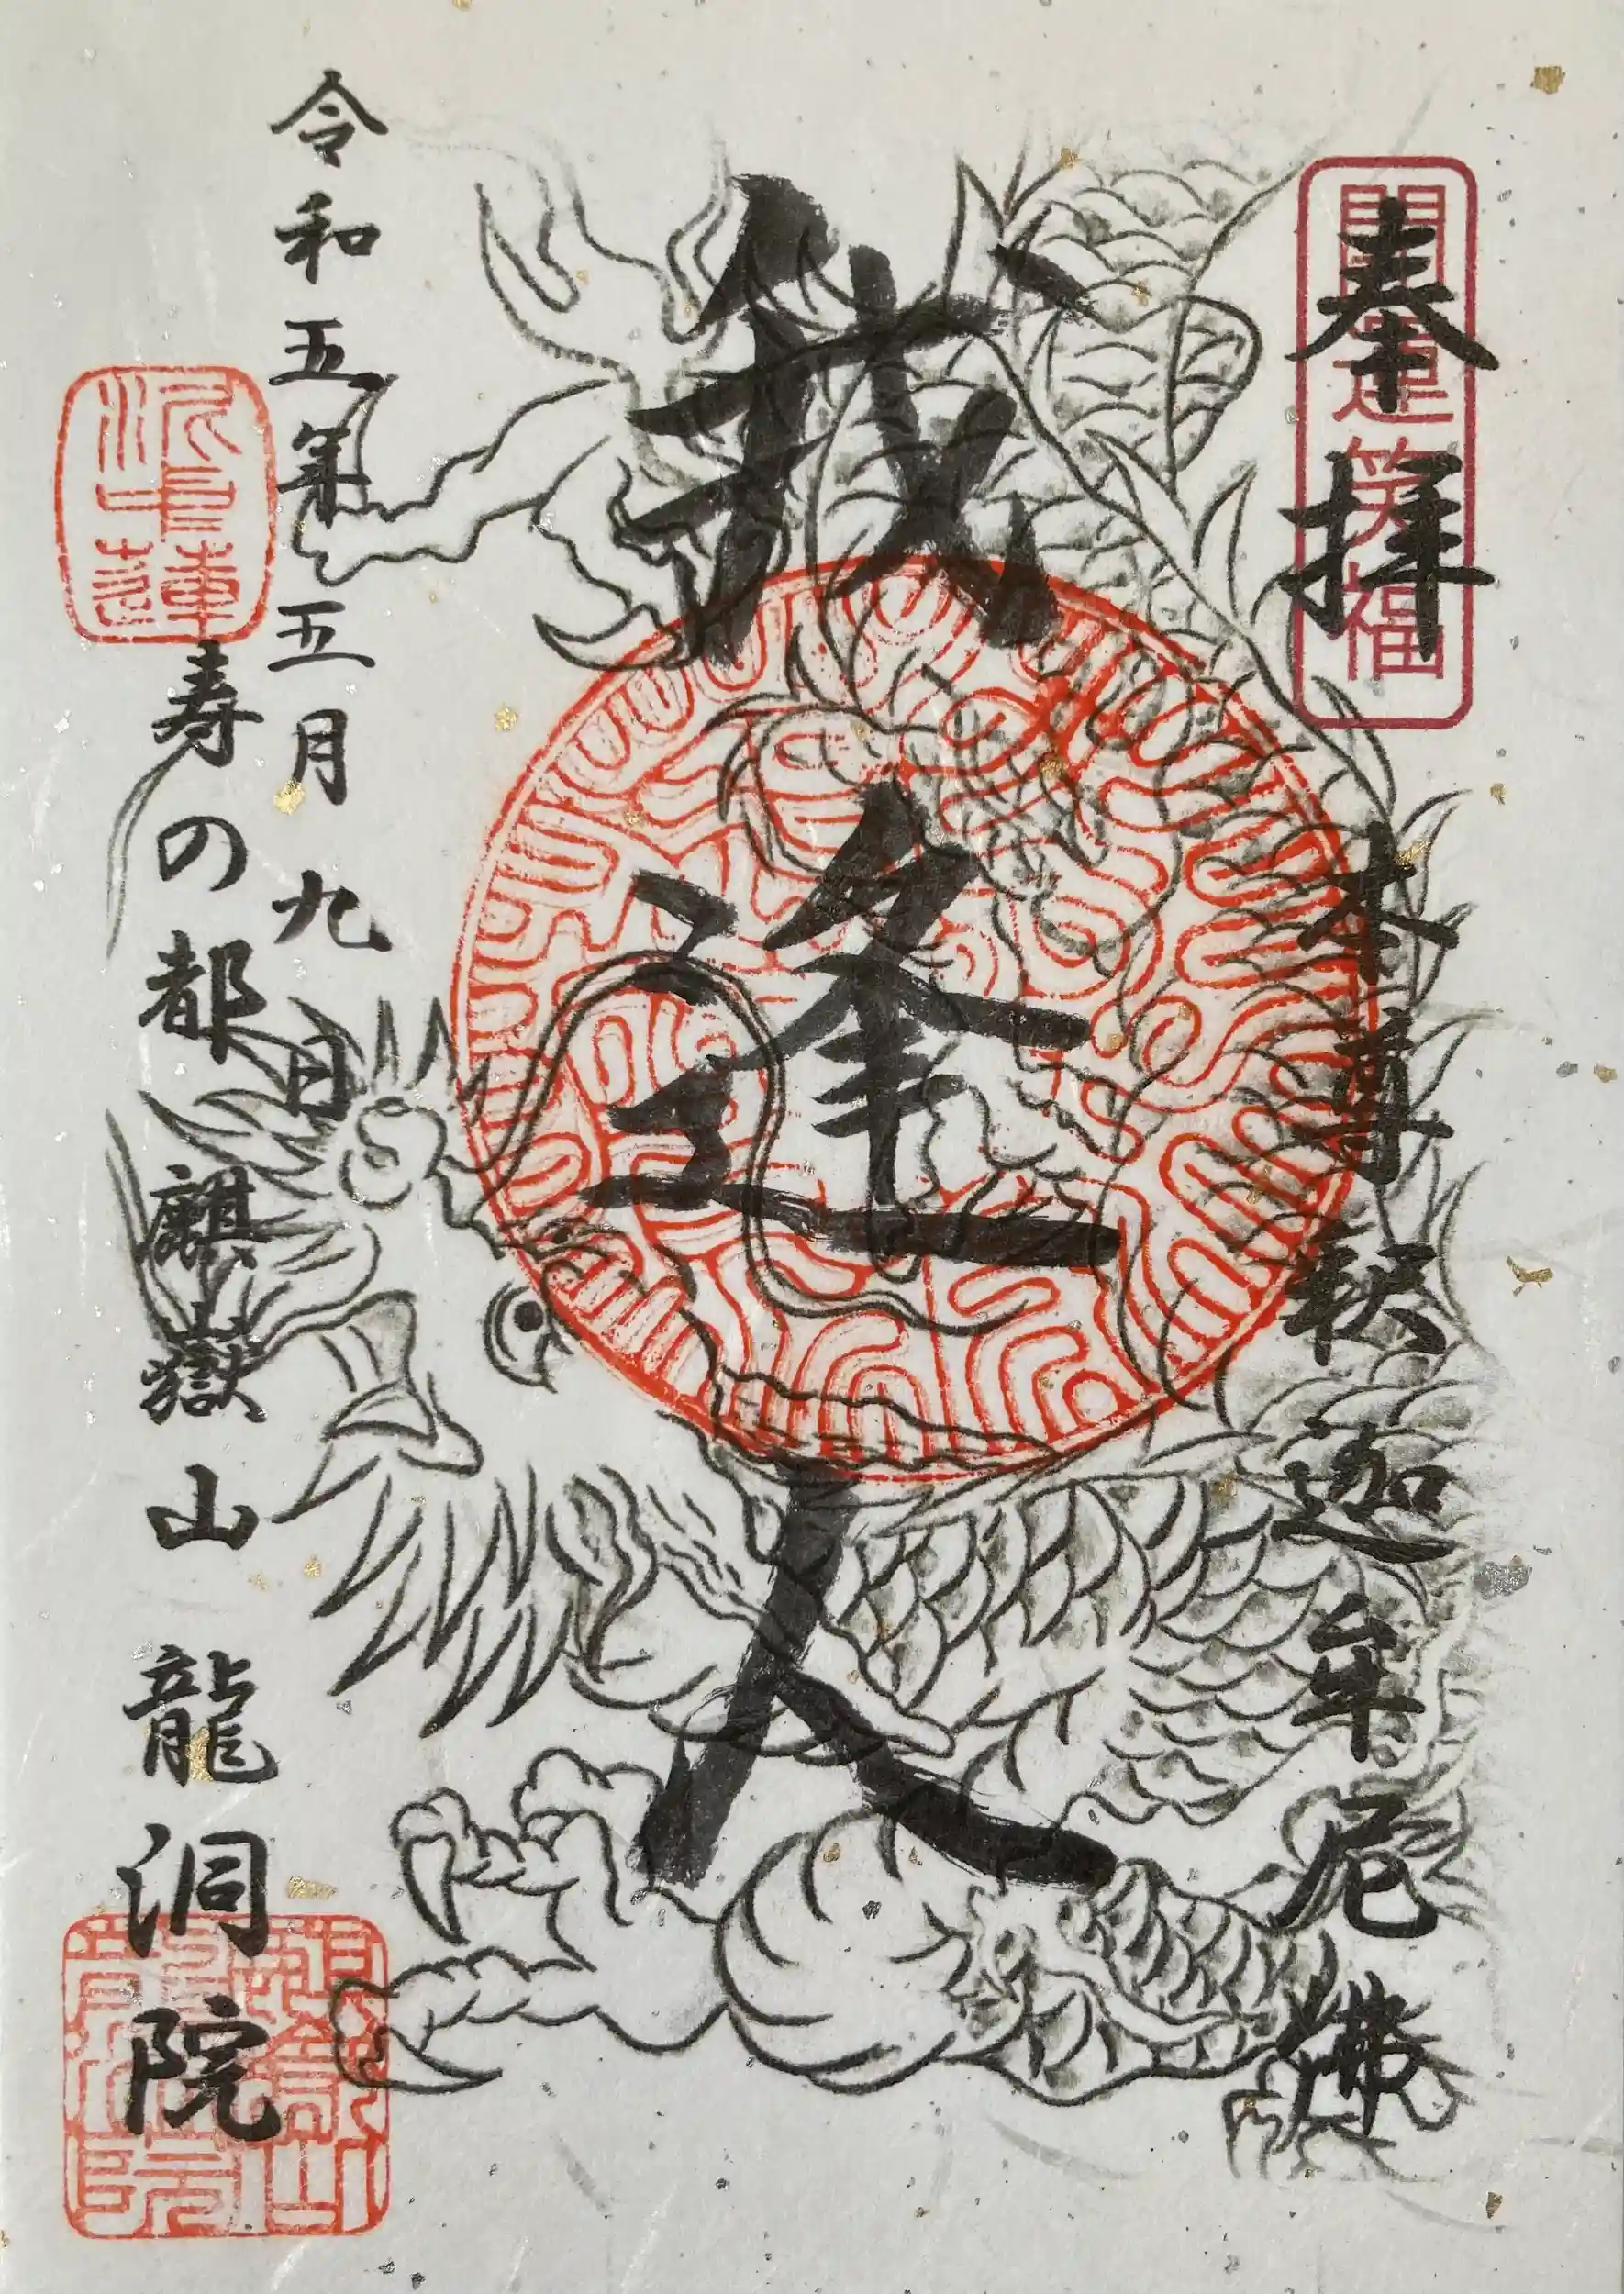 開運笑福
奉拝
本尊釈迦牟尼佛
我逢人
令和五年五月九日
寿の都 麒嶽山 龍洞院